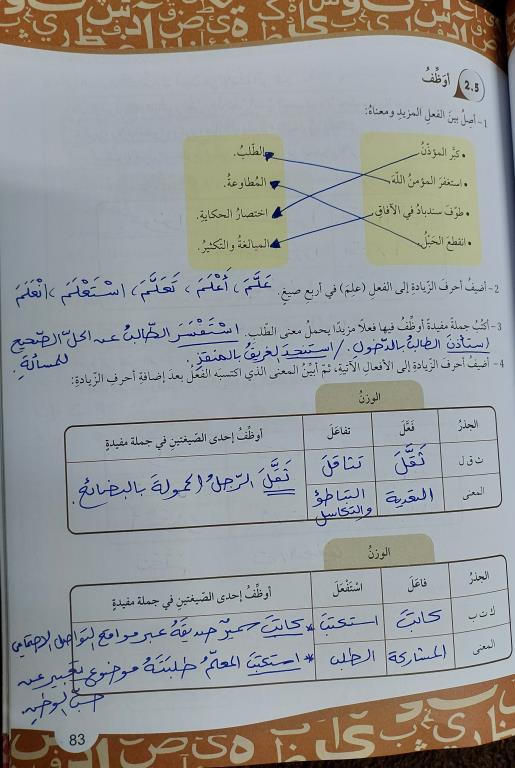 2.5 أُوَظِّفُ
1- أَصِلُ بينَ الفعلِ المزيدِ ومعناهُ:
• كبَّر المؤذّنُ الطّلبُ.
• استغفرَ المؤمنُ اللّهَ المُطاوعةُ.
• طوّفَ سندبادُ في الآفاقِ اختصارُ الحكايةِ.
• انقطعَ الحَبْلُ المبالغةُ والتّكثيرُ.
2- أضيفُ أحرفَ الزّيادةِ إلى الفعلِ (علِمَ) في أربعِ صيغٍ. عَلَّمَ، أَعْلَمَ، تَعَلَّمَ، اسْتَعْلَمَ، انْعَلَمَ
3- أكتُبُ جملةً مفيدةً أوظّفُ فيها فعلًا مزيدًا يحملُ معنى الطّلبِ. اسْتَفْسَرَ الطّالبُ عن الحلّ الصّحيح للمسألةِ.
استأذنَ الطالبُ بالدّخولِ. / استنجدَ الغريقُ بالمنقذِ.
4- أضيفُ أحرفَ الزّيادةِ إلى الأفعالِ الآتيةِ، ثمّ أبيّنُ المعنى الذي اكتسبَه الفعلُ بعدَ إضافةِ أحرفِ الزّيادةِ:
الوزنُ
الجذرُ فَعَّلَ تفاعَلَ أوظّفُ إحدى الصّيغتينِ في جملة مفيدةٍ
ث ق ل ثَقَّلَ تثاقلَ ثَقَّلَ الرّجلُ الحمولةَ بالبضائعِ.
المعنى التعدية التباطؤ والتكاسل
الوزنُ
الجذرُ فاعَلَ اسْتَفْعَلَ أوظّفُ إحدى الصّيغتينِ في جملة مفيدةٍ
ك ت ب كاتبَ استكتبَ * كاتبَ سميرٌ صديقَهُ عبر مواقع التواصل الاجتماعي
المعنى المشاركة الطلب * استكتبَ المعلّمُ طلبتَهُ موضوع تعبير عن حبّ الوطنِ
83